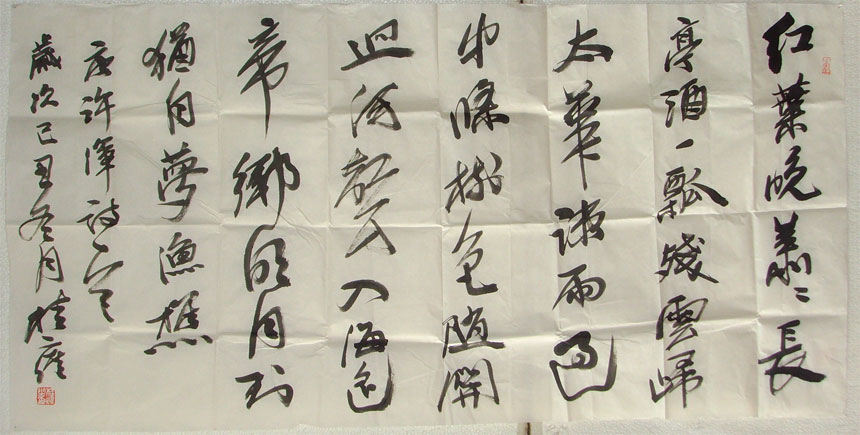 红葉晚蕭〻長
亭酒一瓢殘雲歸
太華疏雨過
中條樹色随關
迥河聲入海遥
帝鄉明日到
猶自夢漁樵
唐许渾诗一首
歲次己丑冬月桂